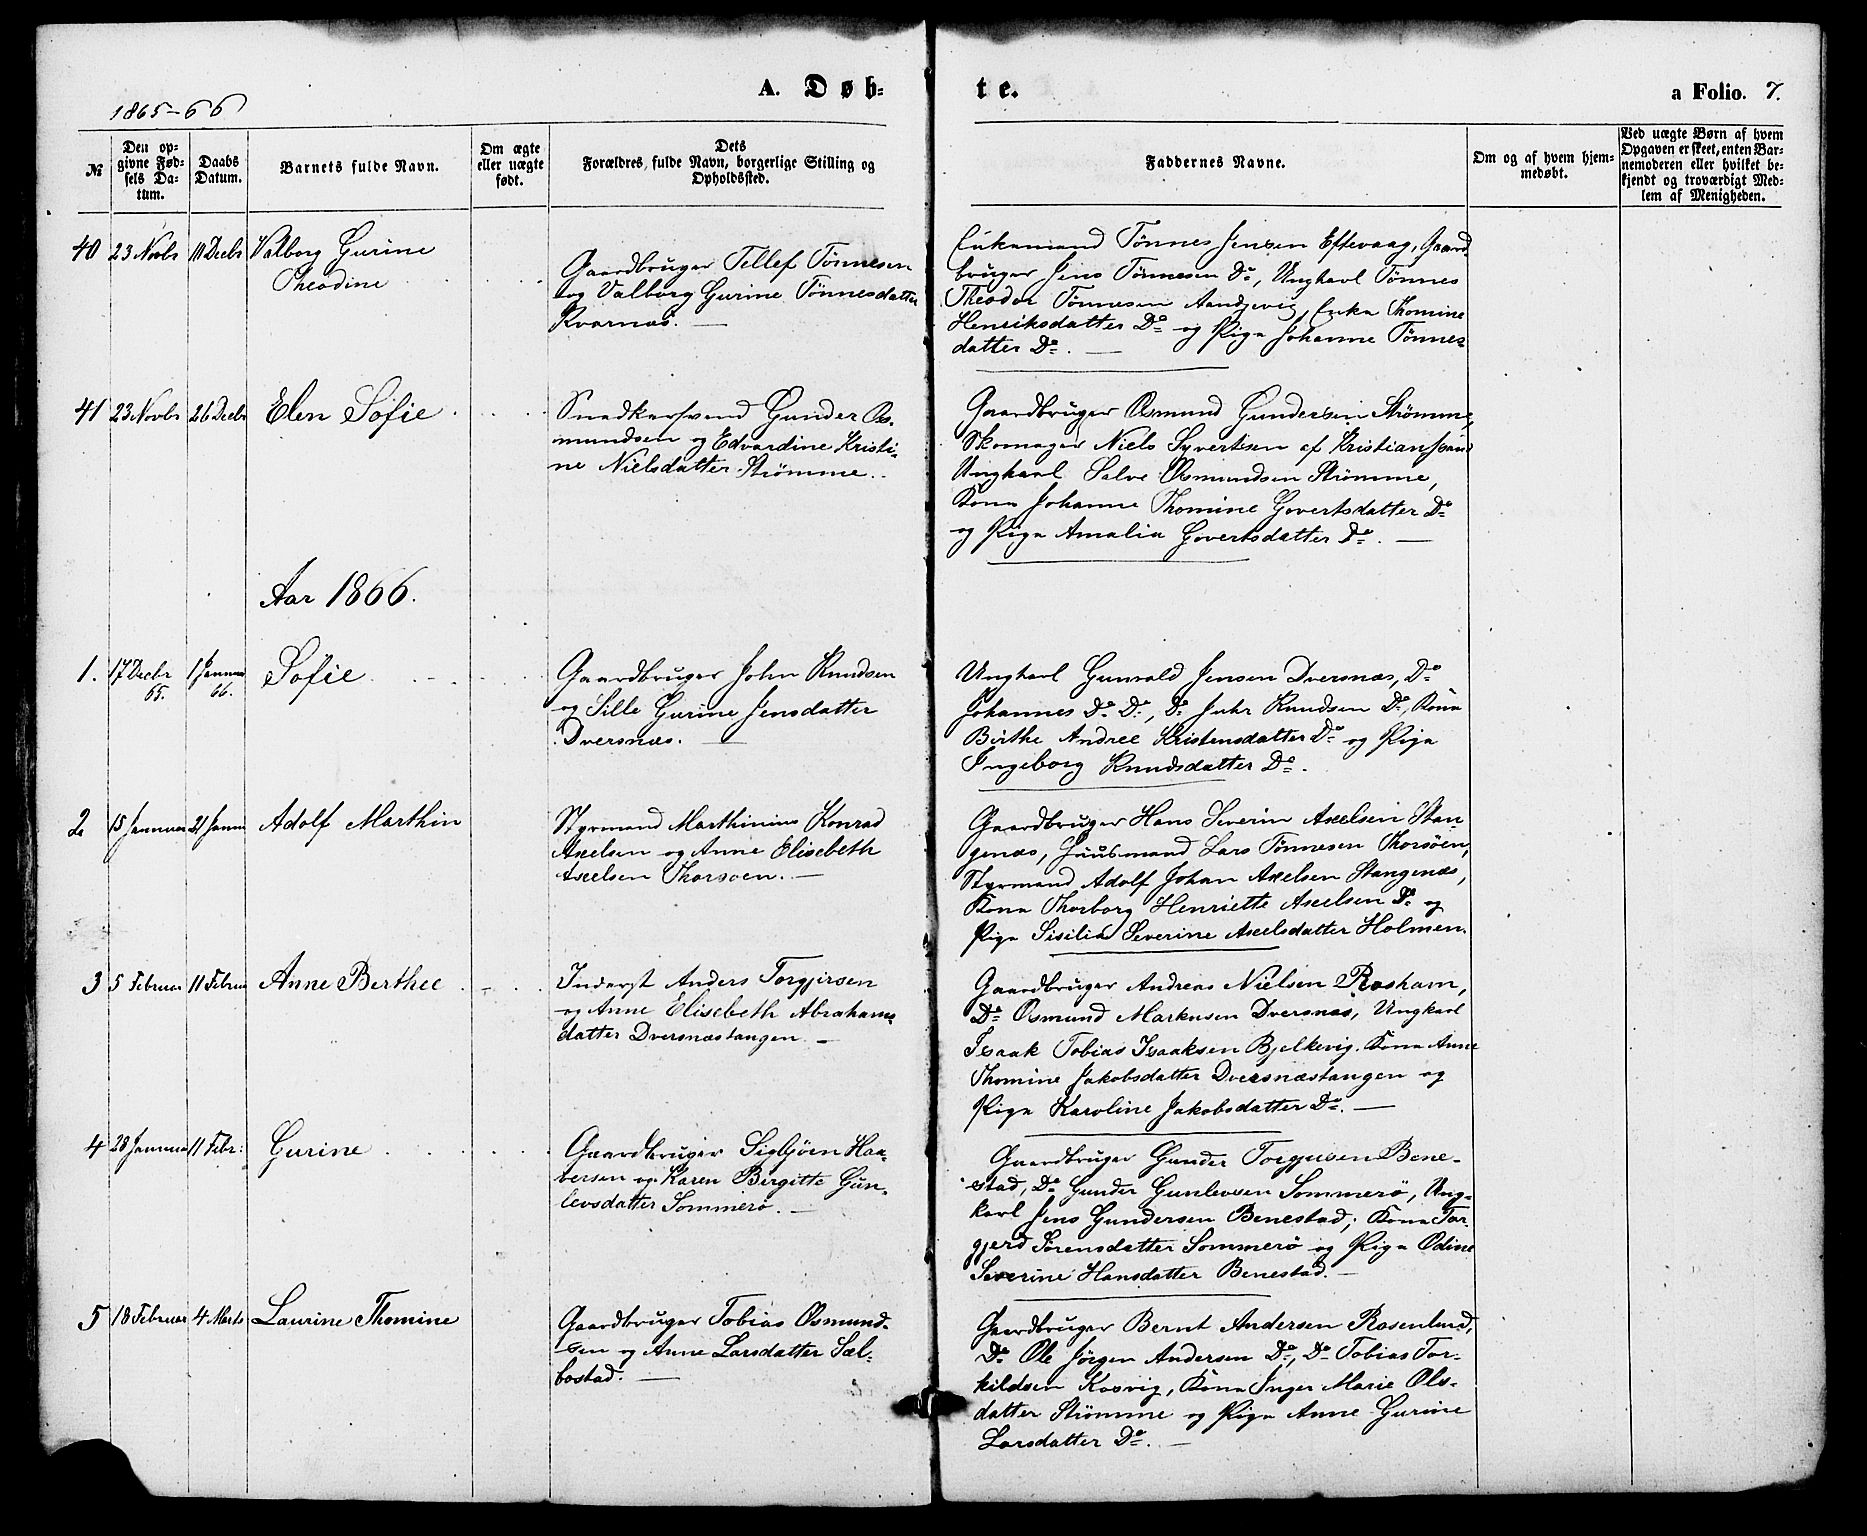 1865-66
A. Døb-
te.
a Folio. 7.
№
Den op-
givne Fød-
sels Da-
tum.
Daabs
Datum.
Barnets fulde Navn.
Om ægte
eller uægte
født.
Dets
Forældres, fulde Navn, borgerlige Stilling og
Opholdssted.
Faddernes Navne.
Om og af hvem hjem-
medøbt.
Ved uægte Børn af hvem
Opgaven er skeet, enten Bar-
nemoderen eller hvilket be-
kjendt og troværdigt Med-
lem af Menigheden.
40 23 Novbr Decbr Valborg Gurine
Theodine
Gaardbruger Tellef Tönnesen
og Valborg Gurine Tönnesdatter
Kvarnæs. —
Enkemand Tönnes Jensen Eftevaag, Gaard-
bruger Jens Tönnesen Do, Ungkarl Tönnes
Theodor Tönnesen Aandjevig, Enka Thomine
Henriksdatter Do og Piga Johanne Tönnes-
datter Do. —
41 23 Novbr 26 Decbr Elen Sofie
Snedkersvend Gunder Os-
mundsen og Edvardine Kristi-
ne Nielsdatter Strömme.
Gaardbruger Osmund Gundersen Strömme,
Skomager Niels Syvertsen af Kristianssand
Ungkarl Salve Osmundsen Strömme,
Kona Johanne Thomine Govertsdatter Do
og Piga Amalia Govertsdatter Do. —
Aar 1866.
1. 17 Decbr 65. 1 Januar 66. Sofie
Gaardbruger John Knudsen
og Sille Gurine Jensdatter
Dversnæs. —
Ungkarl Gunvald Jensen Dversnæs, Do
Johannes Do Do, Do Knudsen Do, Kona
Birthe Andree Kristensdatter Do og Piga
Ingeborg Knudsdatter Do.
2 15 Januar 21 Januar Adolf Marthin
Styrmand Marthinius Konrad
Axelsen og Anne Elisebeth
Axelsen Thorsöen. —
Gaardbruger Hans Severin Axelsen Stan-
genæs, Huusmand Lars Tönnesen Thorsöen,
Styrmand Adolf Johan Axelsen Stangenæs,
Kona Thorborg Henriette Axelsen Do og
Piga Sisilia Severine Axelsdatter Holmen.
3 5 Februar 11 Februar Anne Berthee
Inderst Anders Torgjersen
og Anne Elisebeth Abrahams-
datter Dversnæstangen —
Gaardbruger Andreas Nielsen Rosham,
Do Osmund Markusen Dversnæs, Ungkarl
Isaak Tobias Isaaksen Bjelkevig. Kona Anne
Thomine Jakobsdatter Dversnæstangen og
Piga Karoline Jakobsdatter Do. —
4 28 Januar 11 Febr: Gurine
Gaardbruger Sigbjörn Haa-
versen og Karen Birgitte Gun-
levsdatter Sommerö. —
Gaardbruger Gunder Torgjusen Bene-
stad, Do Gunder Gunlevsen Sommerö, Ung-
karl Jens Gundersen Benestad; Kona Tor-
gjerd Sörensdatter Sommerö og Piga Odine
Severine Hansdatter Benestad. —
5 18 Februar 4 Marts Laurine Thomine
Gaardbruger Tobias Osmund-
sen og Anne Larsdatter Sæl-
bostad. —
Gaardbruger Bernt Andersen Rosenlund,
Do Ole Jörgen Andersen Do, Do Tobias Tor-
kildsen Kosvig, Kona Inger Marie Ols-
datter Strömme og Piga Anne Gurine
Larsdatter Do. —